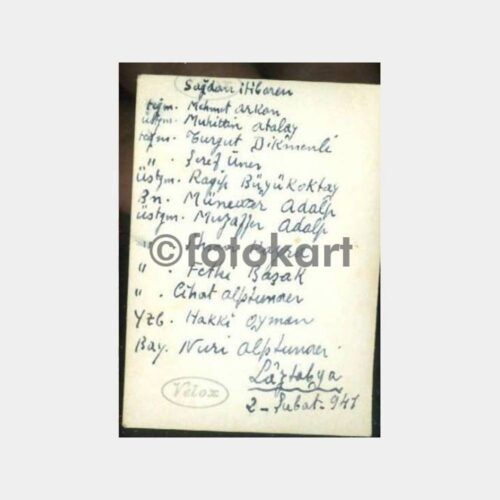 Sağdan itibaren
teğm. Mehmet Arkon
üstğm. Muhittin Atalay
teğm. Turgut Dikmenli
" . Şeref Üner
üstğm. Ragıp Büyükoktay
Bn. Münevver Adalp
üstğm. Muzaffer Adalp
"
©fotokart
" . Fethi Başak
" . Cihat Alptuner
Yzb. Hakkı Oyman
Bay. Nuri Alptuner
Velox
2 - Şubat - 941